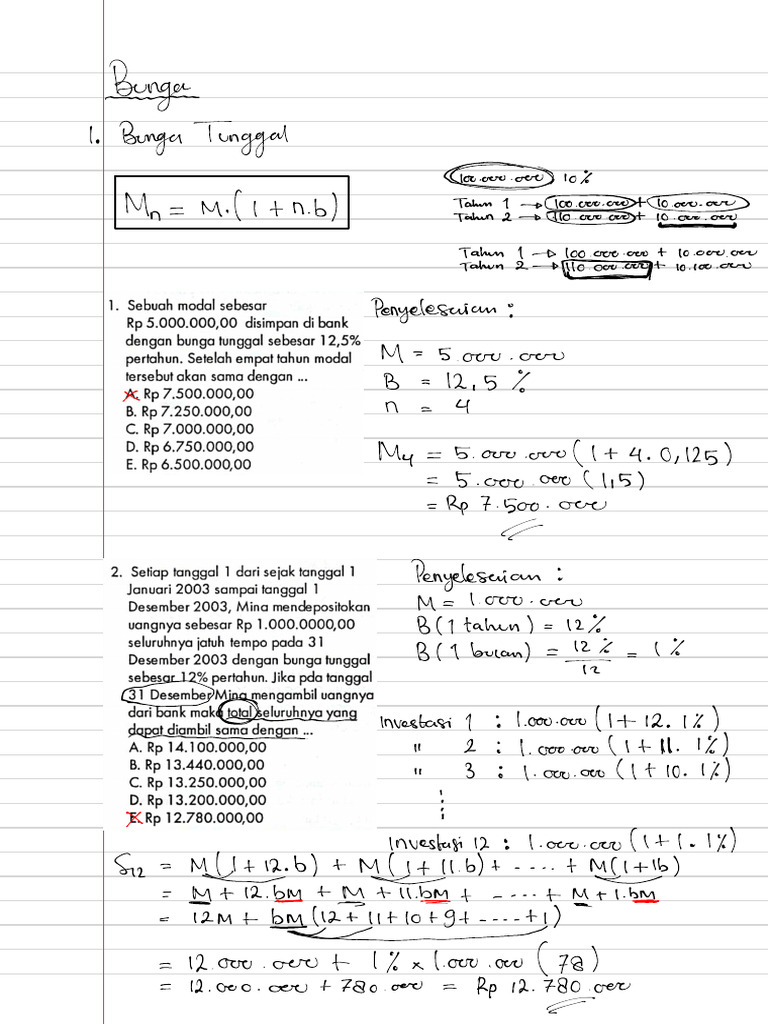 Bunga
1. Bunga Tunggal
Mn = M.(1 + n.b)
100.000.000 10%
Tahun 1 → 100.000.000 + 10.000.000
Tahun 2 → 110.000.000 + 10.000.000
Tahun 1 → 100.000.000 + 10.000.000
Tahun 2 → 110.000.000 + 10.100.000
1. Sebuah modal sebesar
Rp 5.000.000,00 disimpan di bank
dengan bunga tunggal sebesar 12,5%
pertahun. Setelah empat tahun modal
tersebut akan sama dengan ...
A. Rp 7.500.000,00
B. Rp 7.250.000,00
C. Rp 7.000.000,00
D. Rp 6.750.000,00
E. Rp 6.500.000,00
Penyelesaian :
M = 5.000.000
B = 12,5 %
n = 4
M4 = 5.000.000 (1 + 4. 0,125)
= 5.000.000 (1,5)
= Rp 7.500.000
2. Setiap tanggal 1 dari sejak tanggal 1
Januari 2003 sampai tanggal 1
Desember 2003, Mina mendepositokan
uangnya sebesar Rp 1.000.0000,00
seluruhnya jatuh tempo pada 31
Desember 2003 dengan bunga tunggal
sebesar 12% pertahun. Jika pda tanggal
31 Desember Mina mengambil uangnya
dari bank maka total seluruhnya yang
dapat diambil sama dengan ...
A. Rp 14.100.000,00
B. Rp 13.440.000,00
C. Rp 13.250.000,00
D. Rp 13.200.000,00
E. Rp 12.780.000,00
Penyelesaian :
M = 1.000.000
B (1 tahun) = 12%
B (1 bulan) = 12 % / 12 = 1 %
Investasi 1 : 1.000.000 (1 + 12. 1%)
" 2 : 1.000.000 (1 + 11. 1%)
" 3 : 1.000.000 (1 + 10. 1%)
Investasi 12 : 1.000.000 (1 + 1. 1%)
S12 = M(1 + 12.b) + M(1 + 11.b) + ---- + M(1 + 1b)
= M + 12.bM + M + 11.bM + ---- + M + 1.bM
= 12M + bM (12 + 11 + 10 + 9 + ---- + 1)
= 12.000.000 + 1% × 1.000.000 (78)
= 12.000.000 + 780.000 = Rp 12.780.000